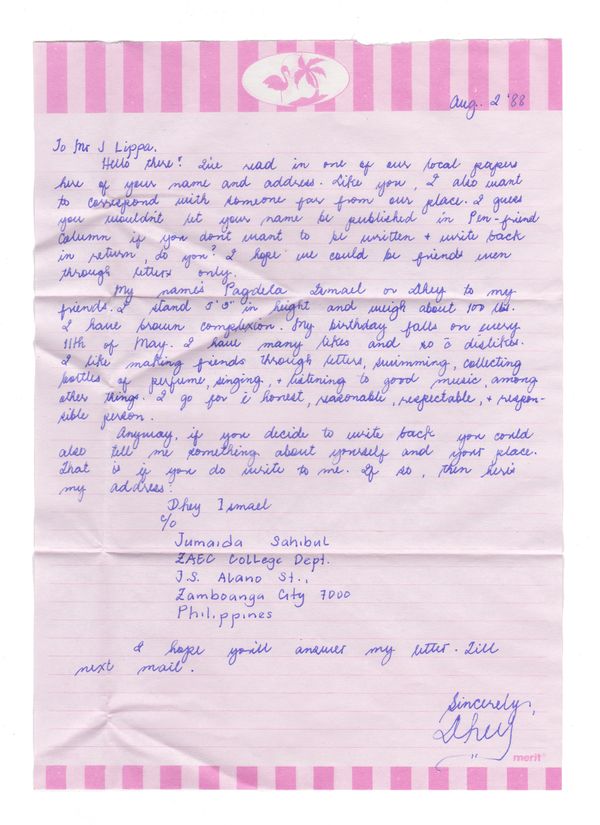 Aug. 2 '88
To Mr J Lippa,
Hello there! I've read in one of our local papers
here of your name and address. Like you, I also want
to correspond with someone far from our place. I guess
you wouldn't let your name be published in Pen-friend
Column if you don't want to be written + write back
in return, do you? I hope we could be friends even
through letters only.
My name's Pagdela Ismael or Dhey to my
friends. I stand 5'3" in height and weigh about 100 lbs.
I have brown complexion. My birthday falls on every
11th of May. I have many likes and so c̄ dislikes.
I like making friends through letters, swimming, collecting
bottles of perfume, singing, + listening to good music, among
other things. I go for honest, reasonable, respectable, + respon-
sible person.
Anyway, if you decide to write back you could
also tell me something about yourself and your place.
That is if you do write to me. If so, then here's
my address:
Dhey Ismael
c/o
Jumaida Sahibul
ZAEC College Dept.
J.S. Alano St.,
Zamboanga City 7000
Philippines
I hope you'll answer my letter. Till
next mail.
Sincerely,
Dhey
merit